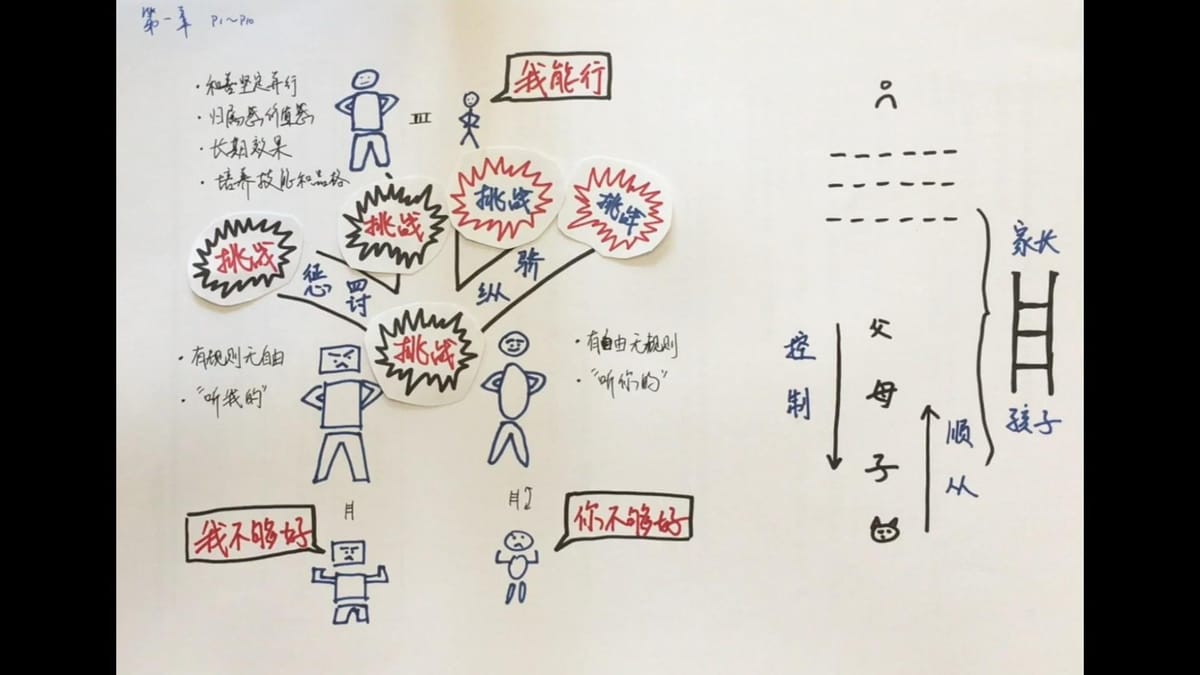 第一章 P1～P10
·和善坚定并行
·归属感价值感
·长期效果
·培养技能和品格
我能行
挑战
挑战
挑战
挑战
惩罚
骄纵
挑战
·有规则无自由
·"听我的"
·有自由无规则
·"听你的"
我不够好
你不够好
控制
父
母
子
顺从
家长
孩子